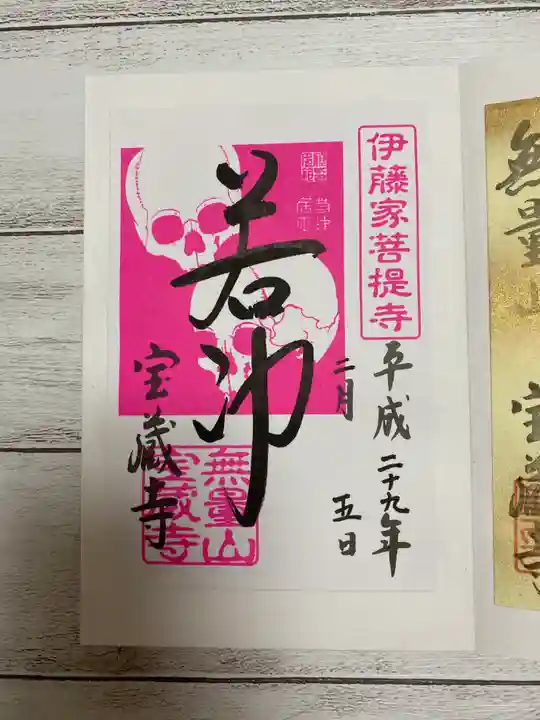 伊藤家菩提寺
平成二十九年
二月
五日
若冲
宝蔵寺
無量山
宝蔵寺
無量山